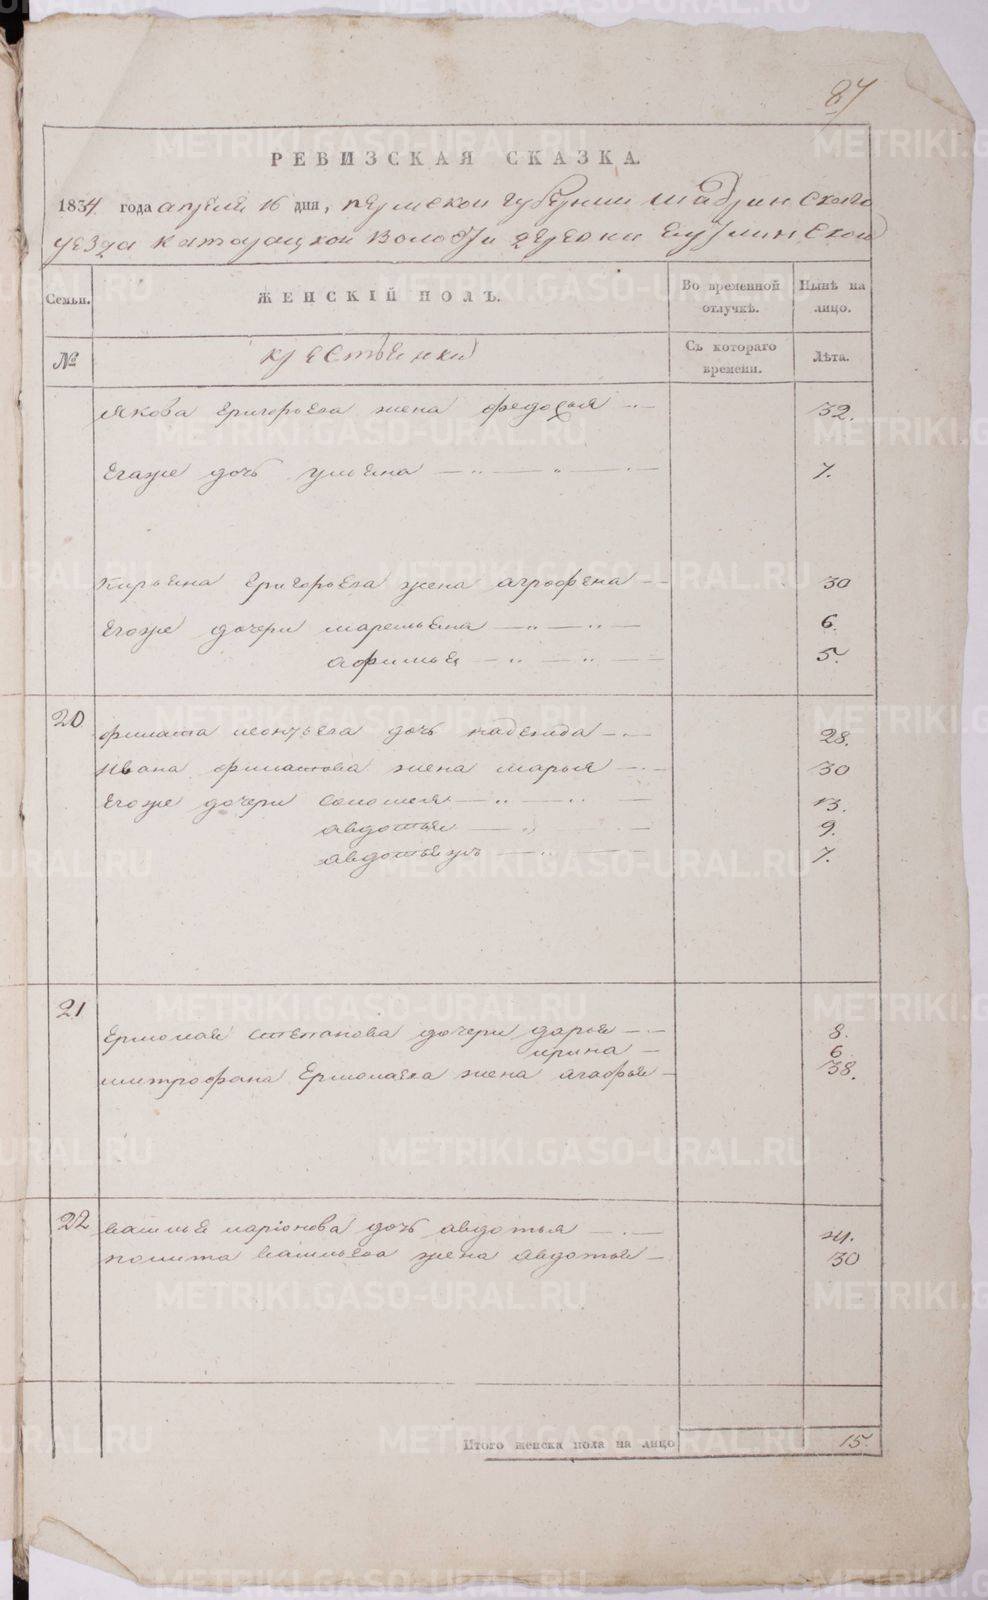 87
РЕВИЗСКАЯ СКАЗКА.
1834 года апреля 16 дня, Пермской губернии Шадринского
уезда Катайцкой волости деревни
Семьи. ЖЕНСКІЙ ПОЛЪ. Во временной отлучкѣ. Нынѣ на лицо.
№ крестьянки Съ котораго времени. Лѣта.
Якова Григорьева жена Федосья 32.
Егоже дочь Ульяна 7.
Кирьяна Григорьева жена Аграфена 30
Егоже дочери Маремьяна 6.
Афимья 5.
20 Филата Леонтьева дочь Надежда 28.
Ивана Филатова жена Марья 30
Егоже дочери Соломея 13.
Авдотья 9.
Авдотья 7.
21 Ермолая Степанова дочери Дарья 8.
Ирина 6
Митрофана Ермолаева жена Агафья 38.
22 Василья Ларіонова дочь Авдотья
Василева жена Авдотья 30
Итого женска пола на лицо 15.
METRIKI.GASO-URAL.RU